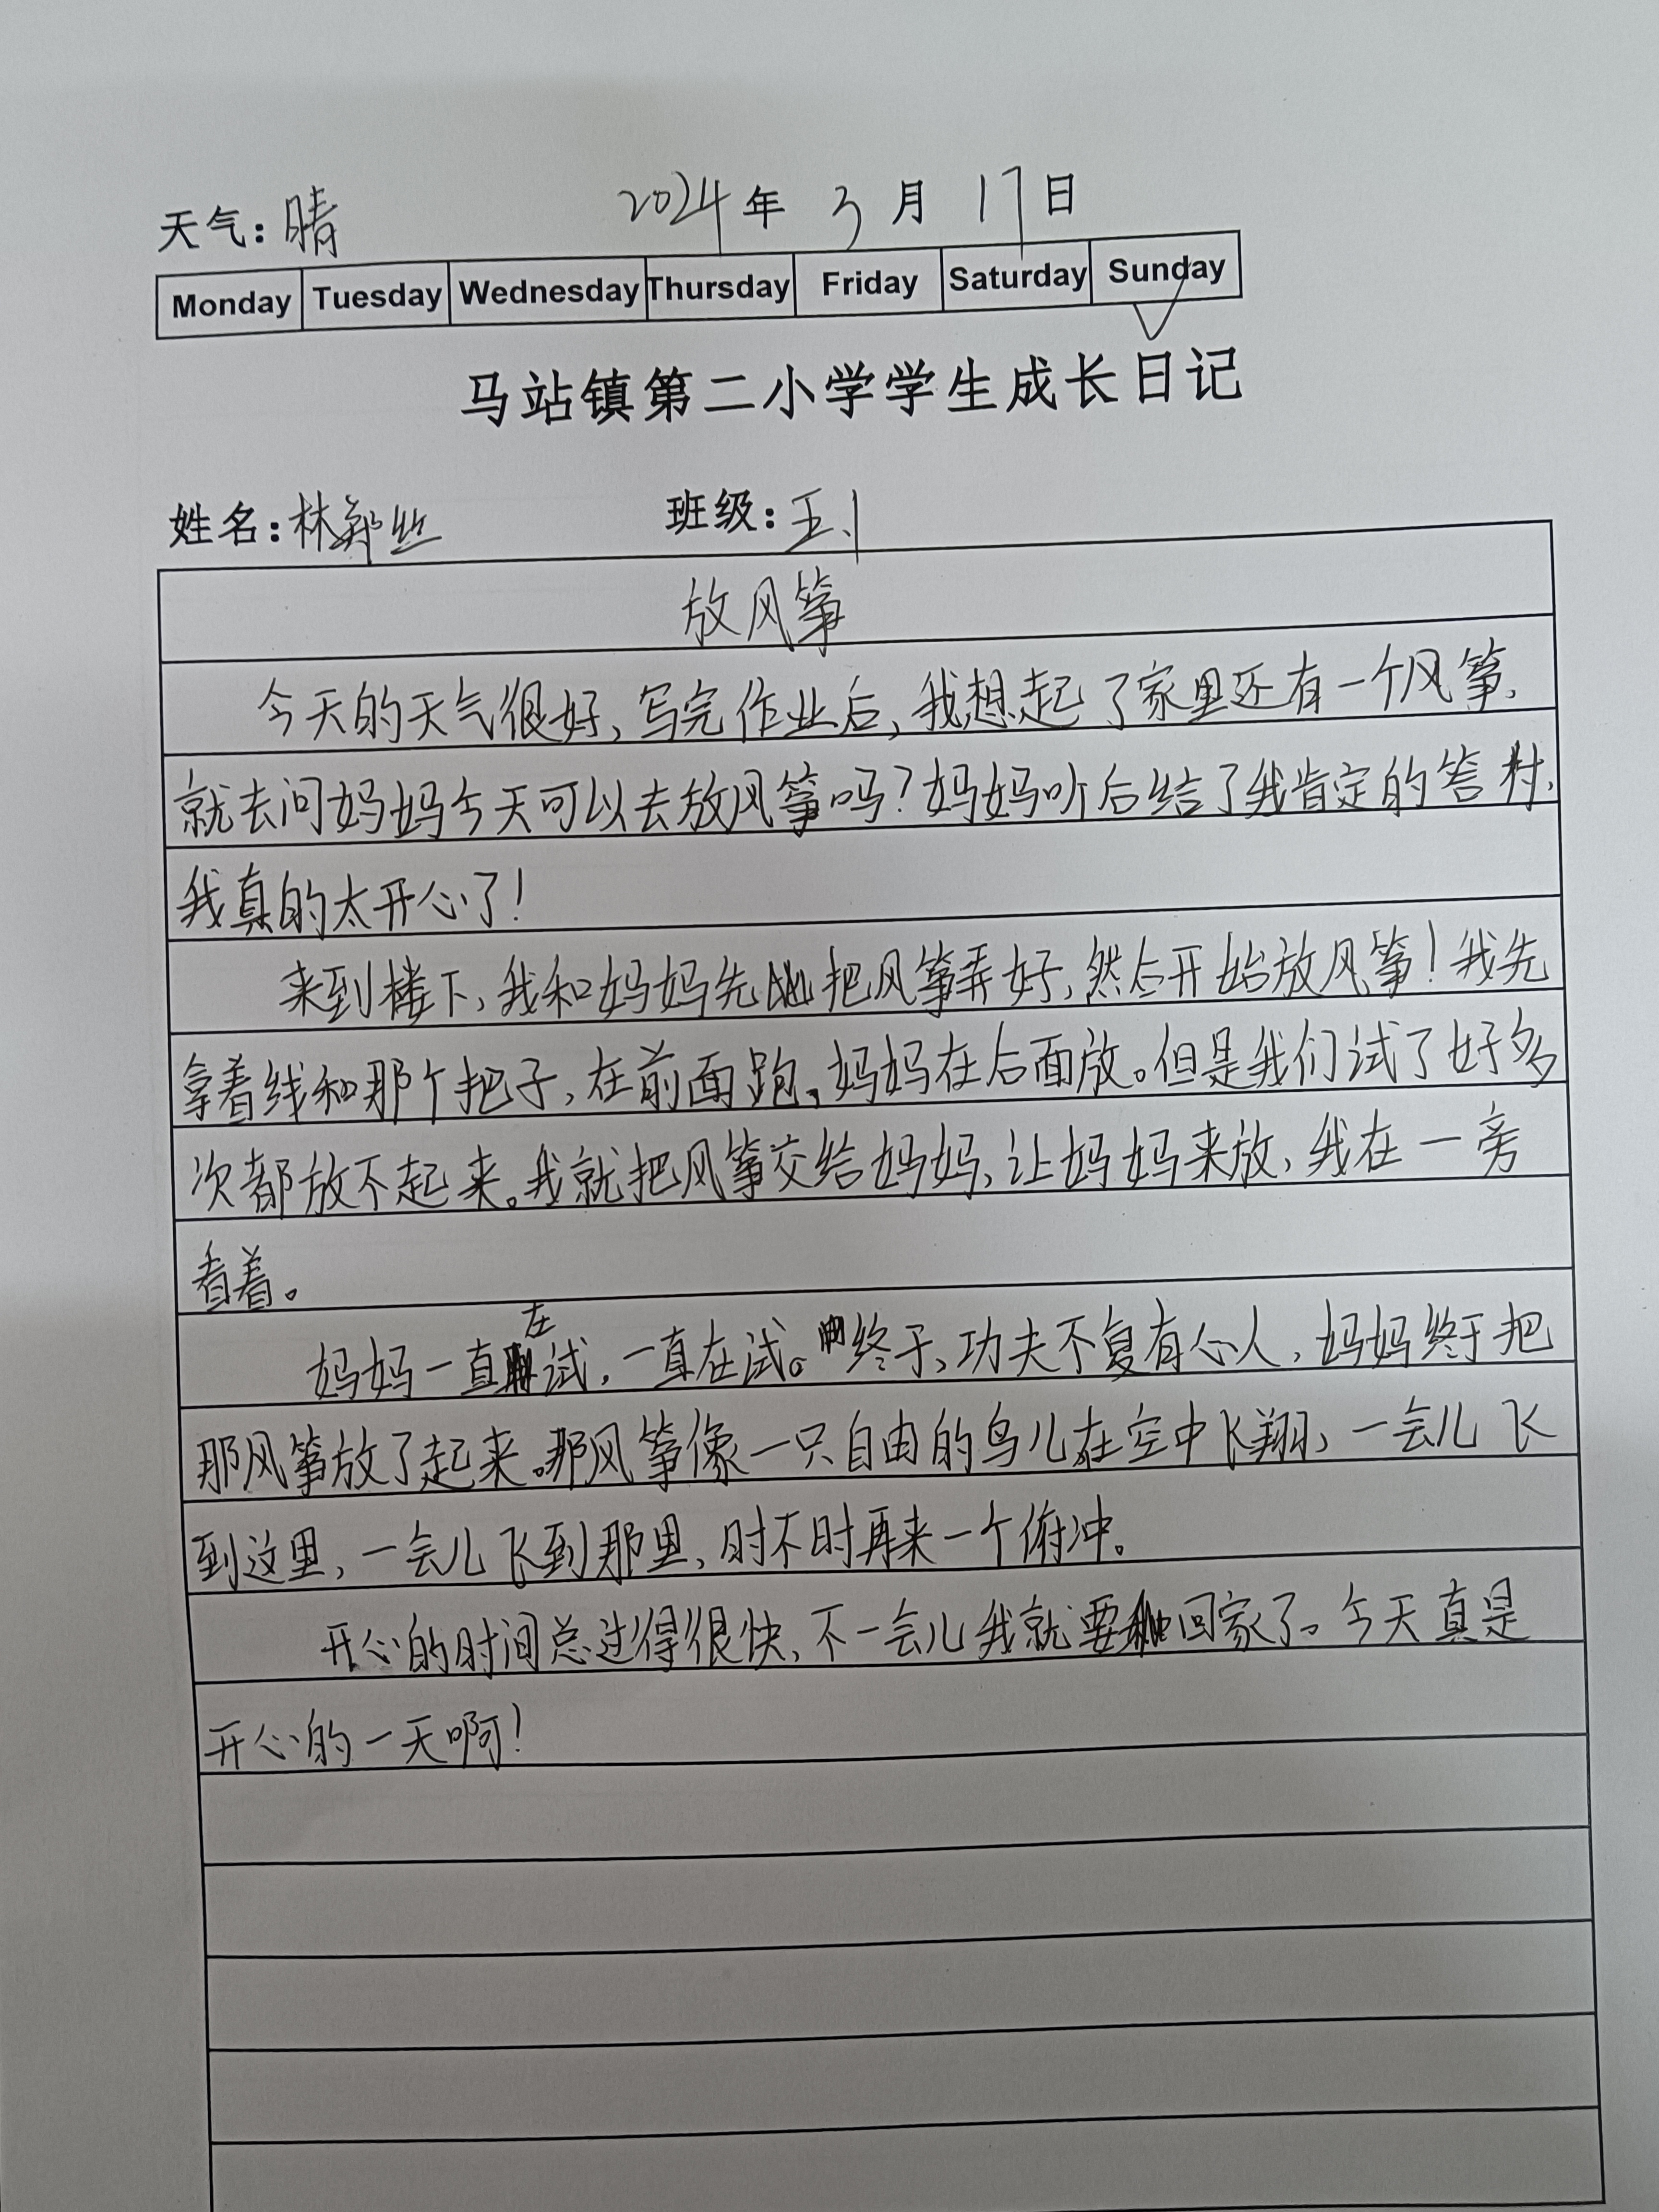 天气：晴 2024年 3月 17日
Monday Tuesday Wednesday Thursday Friday Saturday Sunday
马站镇第二小学学生成长日记
姓名：林郑丝 班级：五.1
放风筝
今天的天气很好，写完作业后，我想起了家里还有一个风筝，
就去问妈妈今天可以去放风筝吗？妈妈听后给了我肯定的答
我真的太开心了！
来到楼下，我和妈妈先把风筝弄好，然后开始放风筝！我先
拿着线和那个把子，在前面跑，妈妈在后面放。但是我们试了好多
次都放不起来。我就把风筝交给妈妈，让妈妈来放，我在一旁
看着。
妈妈一直在试，一直在试。终于，功夫不复有心人，妈妈终于把
那风筝放了起来。那风筝像一只自由的鸟儿在空中飞翔，一会儿飞
到这里，一会儿飞到那里，时不时再来一个俯冲。
开心的时间总过得很快，不一会儿我就要回家了。今天真是
开心的一天啊！